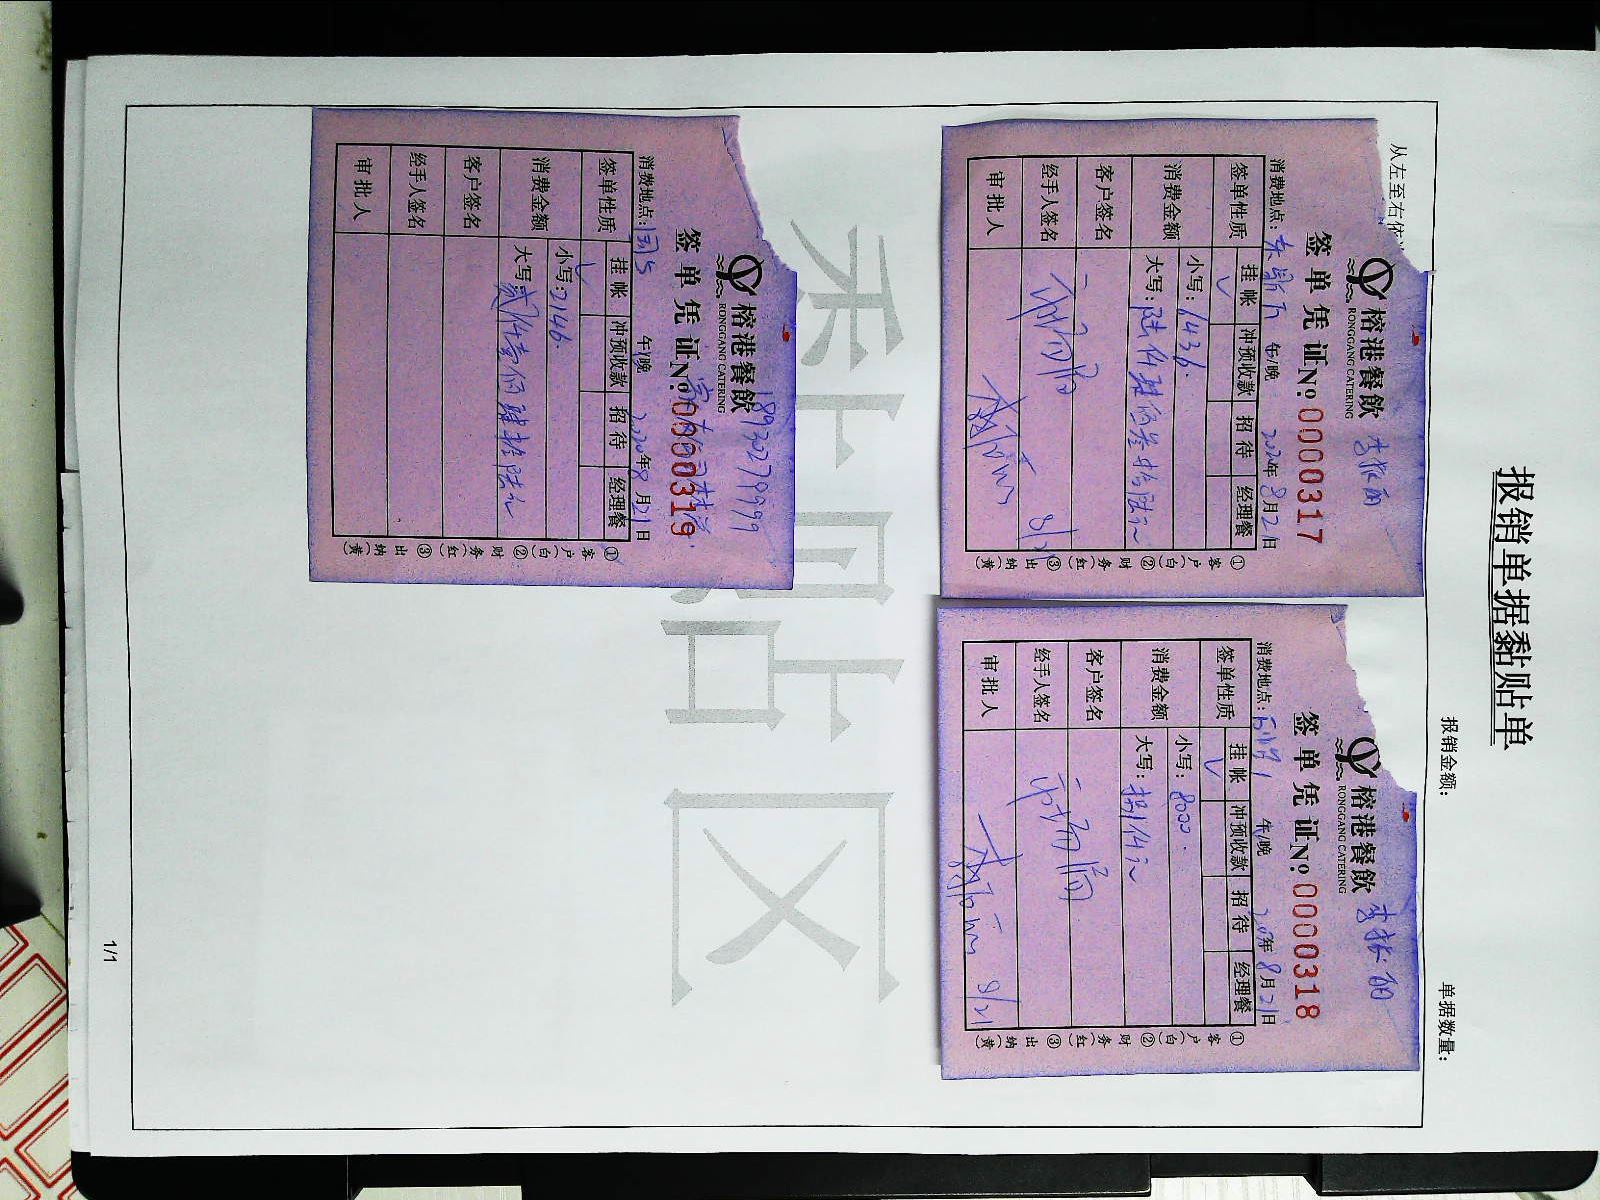 报销单据黏贴单
报销金额：
单据数量：
从左至右依
榕港餐飲
RONGGANG CATERING
签单凭证No.0000317
消费地点： 午/晚 2020年8月21日
签单性质 挂帐 冲预收款 招待 经理餐
√
消费金额 小写：6436.
大写：陆仟肆佰叁拾陆元
客户签名
经手人签名
审批人
8/21
①客户(白)②财务(红)③出纳(黄)
榕港餐飲
RONGGANG CATERING
签单凭证No.0000318
消费地点： 午/晚 2020年8月21日
签单性质 挂帐 冲预收款 招待 经理餐
√
消费金额 小写：8000.
大写：捌仟元
客户签名
经手人签名
审批人 8/21
①客户(白)②财务(红)③出纳(黄)
18930279999
榕港餐飲
RONGGANG CATERING
签单凭证No.0000319
消费地点： 午/晚 2020年8月21日
签单性质 挂帐 冲预收款 招待 经理餐
√
消费金额 小写：2146.
大写：贰仟壹佰肆拾陆元
客户签名
经手人签名
审批人
①客户(白)②财务(红)③出纳(黄)
粘贴区
1/1